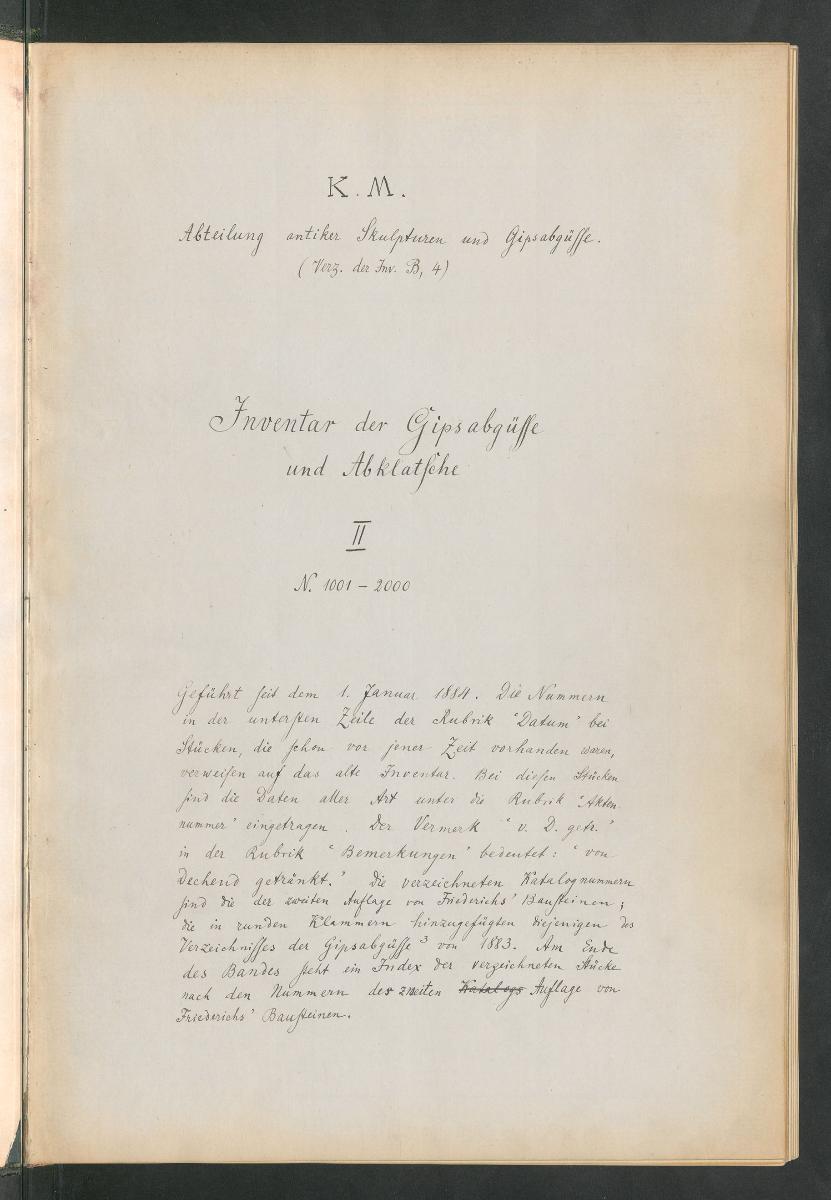 K. M.
Abteilung antiker Skulpturen und Gipsabgüsse.
(Verz. der Inv. B, 4)
Inventar der Gipsabgüsse
und Abklatsche
II
N. 1001 – 2000
Geführt seit dem 1. Januar 1884. Die Nummern
in der untersten Zeile der Rubrik 'Datum' bei
Stücken, die schon vor jener Zeit vorhanden waren,
verweisen auf das alte Inventar. Bei diesen Stücken
sind die Daten aller Art unter die Rubrik 'Akten-
nummer' eingetragen. Der Vermerk "v. D. getr."
in der Rubrik "Bemerkungen" bedeutet: "von
Dechend getränkt." Die verzeichneten Katalognummern
sind die der zweiten Auflage von Friederichs' Bausteinen;
die in runden Klammern hinzugefügten diejenigen des
Verzeichnisses der Gipsabgüsse³ von 1883. Am Ende
des Bandes steht ein Index der verzeichneten Stücke
nach den Nummern der zweiten Katalogs Auflage von
Friederichs' Bausteinen.